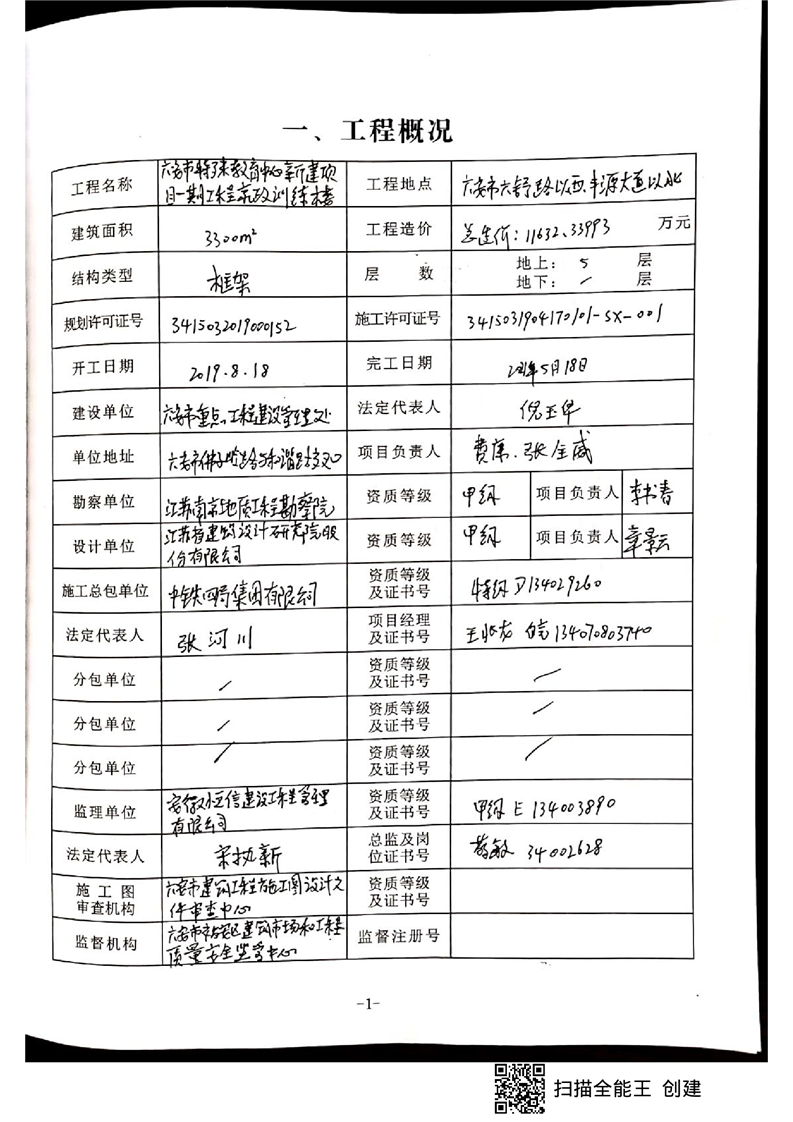 一、工程概况
工程名称 六安市特殊教育中心新建项
目一期工程 训练楼
工程地点 六安市六舒路以西、丰源大道以北
建筑面积 3300m² 工程造价 总造价：11632.33993 万元
结构类型 框架 层 数 地上： 5 层
地下： / 层
规划许可证号 341503201900152 施工许可证号 3415031904170101-SX-001
开工日期 2019.8.18 完工日期 2021年5月18日
建设单位 六安市重点工程建设管理处 法定代表人 倪玉华
单位地址 六安市佛子岭路与和谐路交叉口 项目负责人 费廉、张全威
勘察单位 江苏南京地质工程勘察院 资质等级 甲级 项目负责人 李书春
设计单位 江苏省建筑设计研究院股
份有限公司 资质等级 甲级 项目负责人 章景云
施工总包单位 中铁四局集团有限公司 资质等级
及证书号 特级 D134029260
法定代表人 张河川 项目经理
及证书号 王 134070803740
分包单位 / 资质等级
及证书号 /
分包单位 / 资质等级
及证书号 /
分包单位 / 资质等级
及证书号 /
监理单位 安徽恒信建设工程管理
有限公司 资质等级
及证书号 甲级 E134003890
法定代表人 宋执新 总监及岗
位证书号 敏 34002628
施工图
审查机构 六安市建筑工程施工图设计文
件审查中心 资质等级
及证书号
监督机构 六安市裕安区建筑市场和工程
质量安全监督中心 监督注册号
-1-
扫描全能王 创建